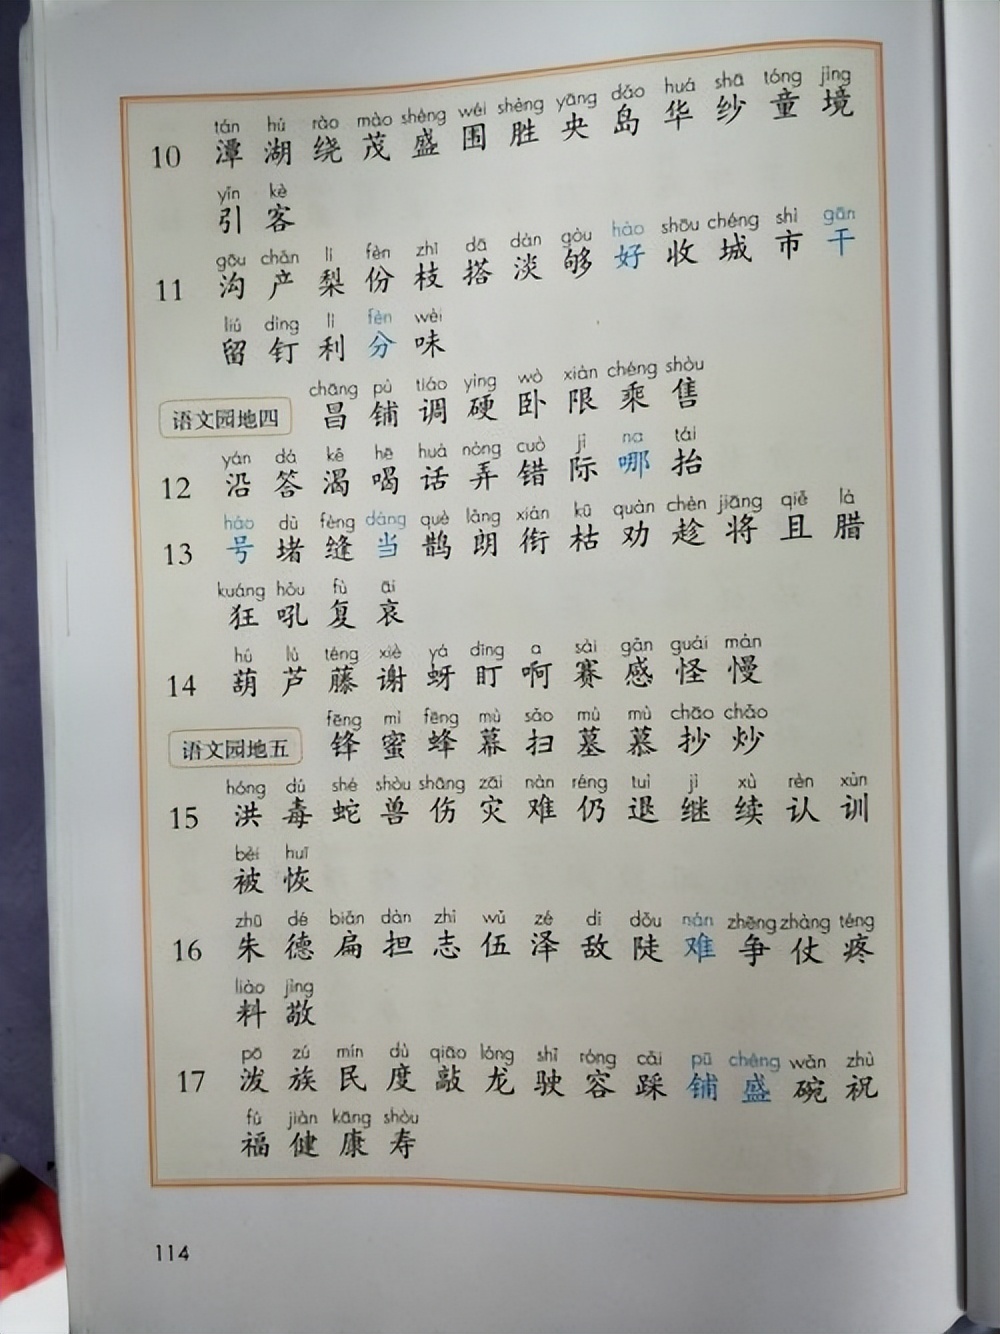 tán hú rào mào shèng wéi shèng yāng dǎo huá shā tóng jìng
10 潭 湖 绕 茂 盛 围 胜 央 岛 华 纱 童 境
yǐn kè
引 客
gōu chǎn lí fèn zhī dā dàn gòu hào shōu chéng shì gān
11 沟 产 梨 份 枝 搭 淡 够 好 收 城 市 干
liú dīng lì fèn wèi
留 钉 利 分 味
chāng pù tiáo yìng wò xiàn chéng shòu
语文园地四 昌 铺 调 硬 卧 限 乘 售
yán dá kě hē huà nòng cuò jì na tái
12 沿 答 渴 喝 话 弄 错 际 哪 抬
háo dǔ fèng dàng què lǎng xián kū quàn chèn jiāng qiě là
13 号 堵 缝 当 鹊 朗 衔 枯 劝 趁 将 且 腊
kuáng hǒu fù āi
狂 吼 复 哀
hú lú téng xiè yá dīng a sài gǎn guài màn
14 葫 芦 藤 谢 蚜 盯 啊 赛 感 怪 慢
fēng mì fēng mù sǎo mù mù chāo chǎo
语文园地五 锋 蜜 蜂 幕 扫 墓 慕 抄 炒
hóng dú shé shòu shāng zāi nàn réng tuì jì xù rèn xùn
15 洪 毒 蛇 兽 伤 灾 难 仍 退 继 续 认 训
bèi huī
被 恢
zhū dé biǎn dàn zhì wǔ zé dí dǒu nán zhēng zhàng téng
16 朱 德 扁 担 志 伍 泽 敌 陡 难 争 仗 疼
liào jìng
料 敬
pō zú mín dù qiāo lóng shǐ róng cǎi pū chéng wǎn zhù
17 泼 族 民 度 敲 龙 驶 容 踩 铺 盛 碗 祝
fú jiàn kāng shòu
福 健 康 寿
114